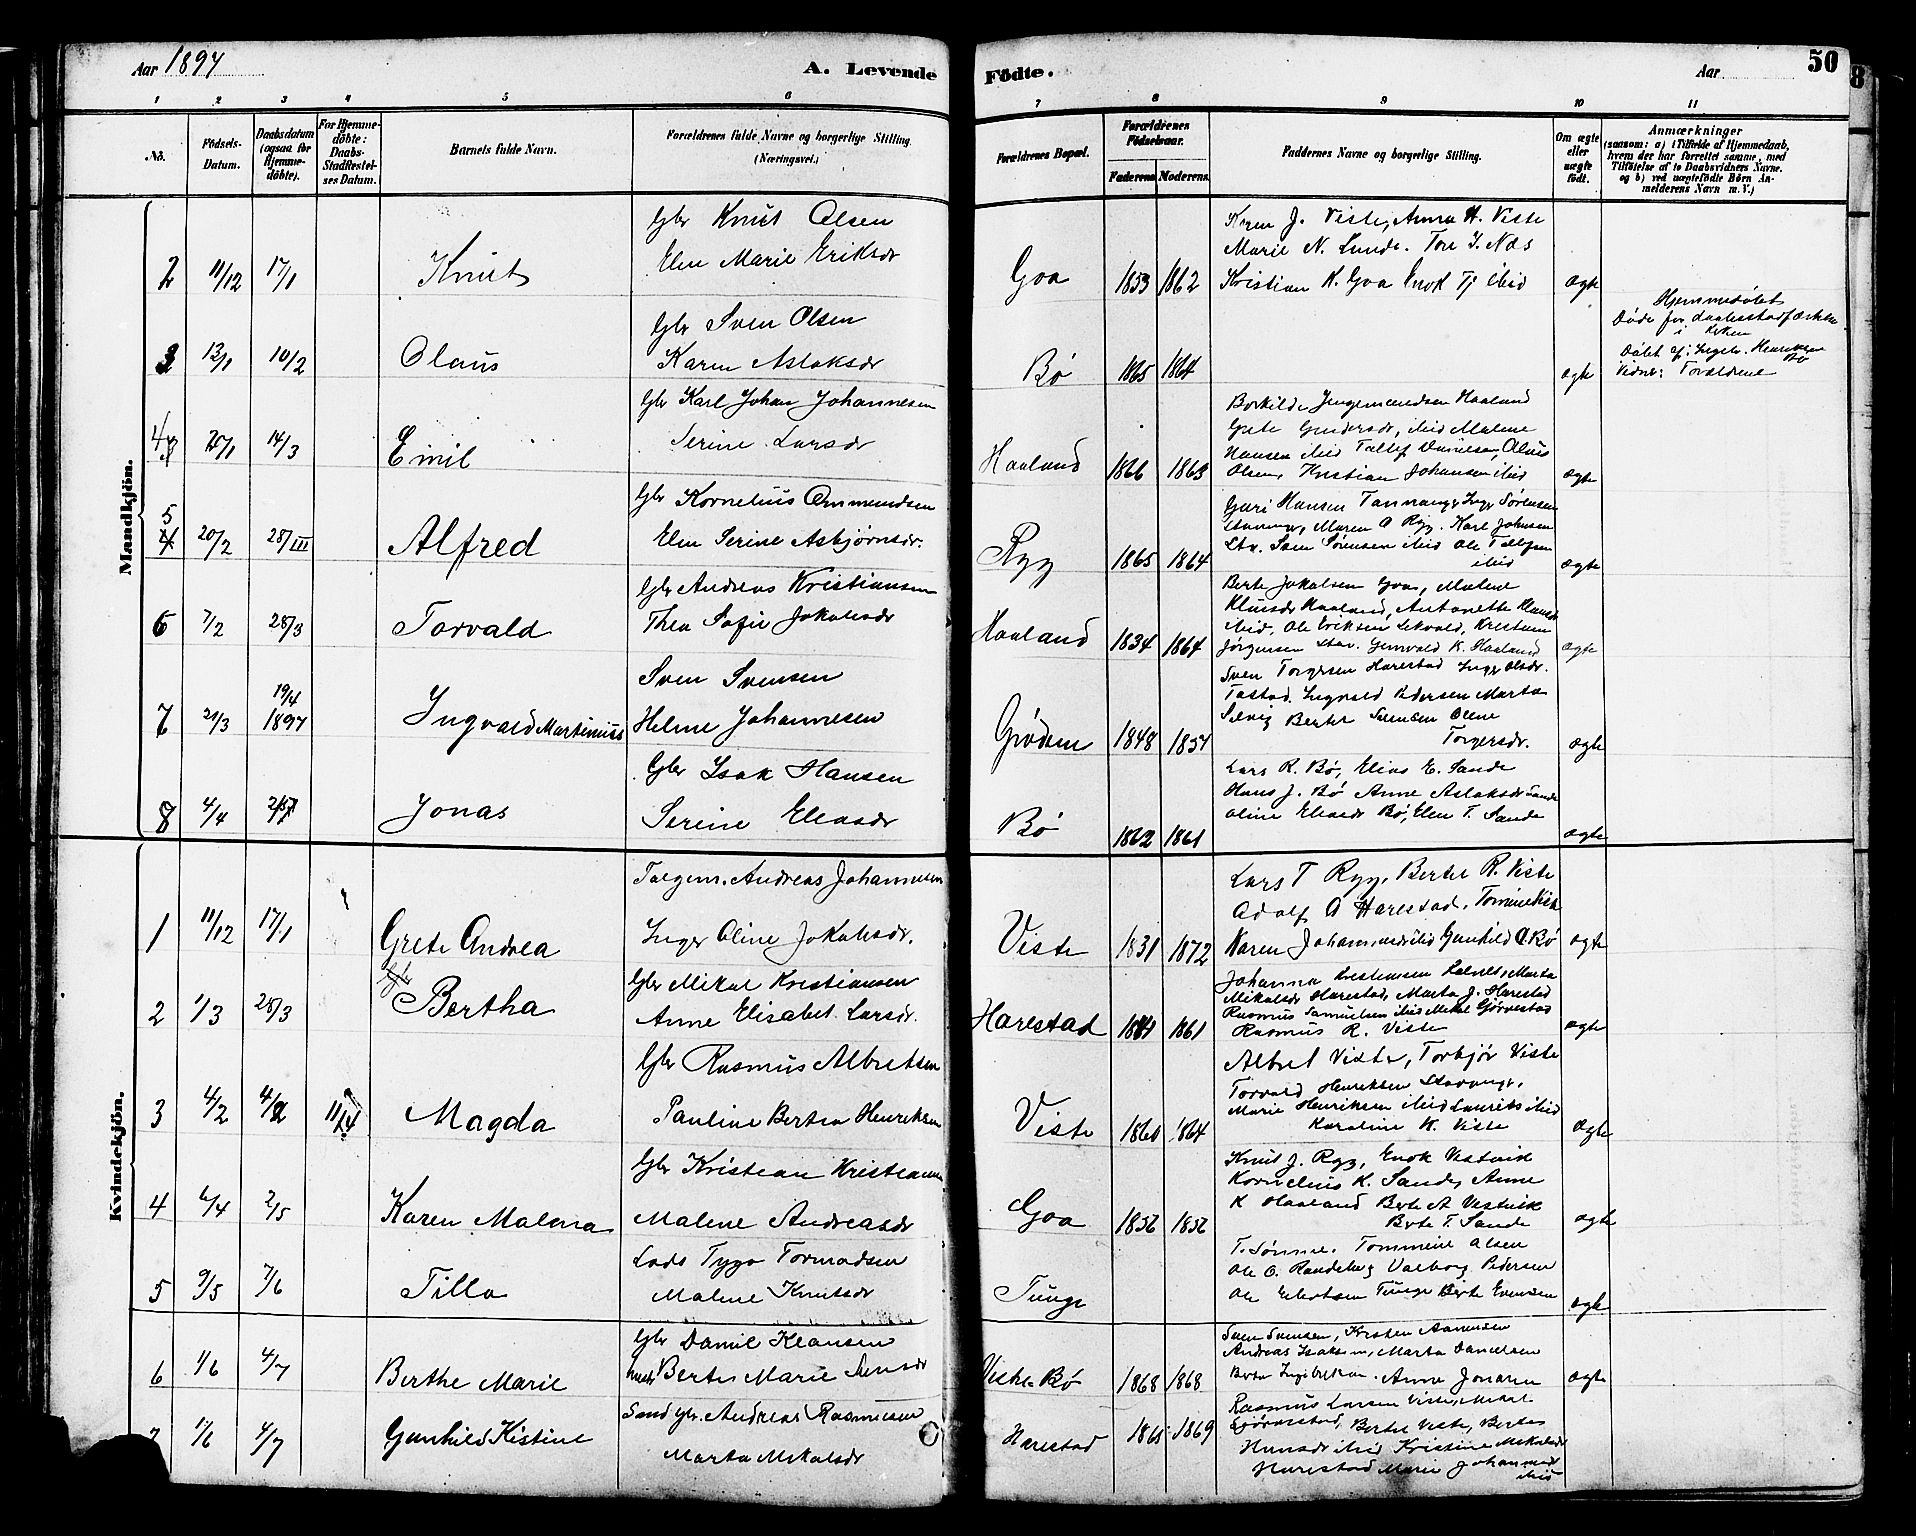 Aar 1897
A. Levende
Födte.
Aar
50
8
1 2 3 4 5 6 7 8 9 10 11
No.
Födsels-
Datum.
Daabsdatum
(ogsaa for
Hjemme-
döbte).
For Hjemme-
döbte:
Daabs-
Stadfestel-
ses Datum.
Barnets fulde Navn.
Forældrenes fulde Navne og borgerlige Stilling.
(Næringsvei.)
Forældrenes Bopæl.
Forældrenes
Födselsaar.
Faderens Moderens
Faddernes Navne og borgerlige Stilling.
Om ægte
eller
uægte
födt.
Anmærkninger
(saasom: a) i Tilfælde af Hjemmedaab,
hvem der har forrettet samme, med
Tilföielse af to Daabsvidners Navne.
og b) ved uægtefödte Börn An-
melderens Navn m. V.)
Mandkjön.
2 11/12 17/1 Knut
Gbr Knut Olsen
Elen Marie Eriksdr
Goa 1853 1862
Karen J. Viste, Anna H. Viste
Marie N. Lunde. Tore J. Næs
Kristian K. Goa Enok Tj ibid
ægte
3 13/1 10/2 Olaus
Gbr Sven Olsen
Karen Aslaksdr
Bø 1865 1864
ægte
Hjemmedøbt
i Kirken
Vidner: Forældrene
4 25/1 14/3 Emil
Gbr Karl Johan Johannesen
Serine Larsdr
Haaland 1866 1863
Olsen, Kristian Johansen ibid
ægte
5 20/2 28/III Alfred
Gbr Kornelius Ommundsen
Elen Serine Asbjørnsdr.
Rygg 1865 1864
Guri Hansen Tannanger Inger Sørensen
Stavanger, Maren O Rygg. Karl Johnsen
Stv. Sven Sørensen ibid Ole
ibid
ægte
6 7/2 28/3 Torvald
Gbr Andreas Kristiansen
Thea Sofie Jakobsdr
Haaland 1834 1864
Berte Jakobsen Goa, Malene
Haaland, Antonette
ibid, Ole Eriksen Kristian
Jørgensen Stav. K. Haaland
ægte
7 21/3 19/4
1897
Ingvald Martinius
Sven Svensen
Helene Johannesen
Grødem 1848 1857
Sven Torgersen Harestad Inger Olsdr.
Tastad. Ingvald Pedersen Marta
Berter Svensen Olene
Torgersdr.
ægte
8 4/4 Jonas
Gbr Isak Hansen
Serine Eliasdr
Bø 1862 1861
Lars R. Bø, Elias E. Sande
Hans J. Bø Anne Aslaksdr Sande
Oline Eliasdr Bø, Elen T. Sande
ægte
Kvindekjön.
1 11/12 17/1 Grete Andrea
Andreas Johannesen
Inger Oline Jakobsdr.
Viste 1831 1872
Lars T Rygg, Bertel R. Viste
Adolf O Harestad,
Karen Johannesdr ibid Gunhild O Bø
ægte
2 1/3 28/3 Bertha
Gbr Mikal Kristiansen
Anne Elisabet Larsdr.
Harestad 1861
Johanna Kristiansen Marta
Mikalsdr Harestad, Marta J. Harestad
Rasmus Samuelsen ibid Mikal Gjørvestad
Rasmus R. Viste
ægte
3 4/2 11/4 Magda
Gbr Rasmus Albretsen
Pauline Bertea Henriksen
Viste 1860 1864
Albret Viste, Torbjør Viste
Torvald Henriksen Stavanger.
Marie Henriksen ibid Laurits ibid
Karoline K. Viste
ægte
4 2/5 Karen Malena
Gbr Kristian Kristiansen
Malene Andreasdr
Goa 1856 1856
Knut J. Rygg, Enok Vestvik
Kornelius K. Sande, Anne
K Haaland Berte A Vestvik
Berte T. Sande
ægte
5 9/5 7/6 Tilla
Lods Tygo Tormodsen
Malene Knutsdr
Tunge
T. Sønne. Tommine Olsen
Ole O. Randeberg Valborg Pedersen
Ole Eilertsen Tunge Berte Evensen
ægte
6 1/6 4/7 Berthe Marie
Gbr Daniel Klausen
Berte Marie
Viste-Bø 1868 1868
Sven Svensen, Kirsten Aanensen
Andreas Isaksen, Marta Danielsen
Berta Ingebretsen. Anna Jonasen
ægte
7 1/6 4/7 Gunhild Kistine
Sand gbr. Andreas Rasmusen
Marta Mikalsdr
Harestad 1865 1869
Rasmus Larsen Viste, Mikal
Gjørvestad, Bertel Viste, Berta
Hansdr ibid Kristine Mikalsdr
Harestad Marie Johannesdr
ibid